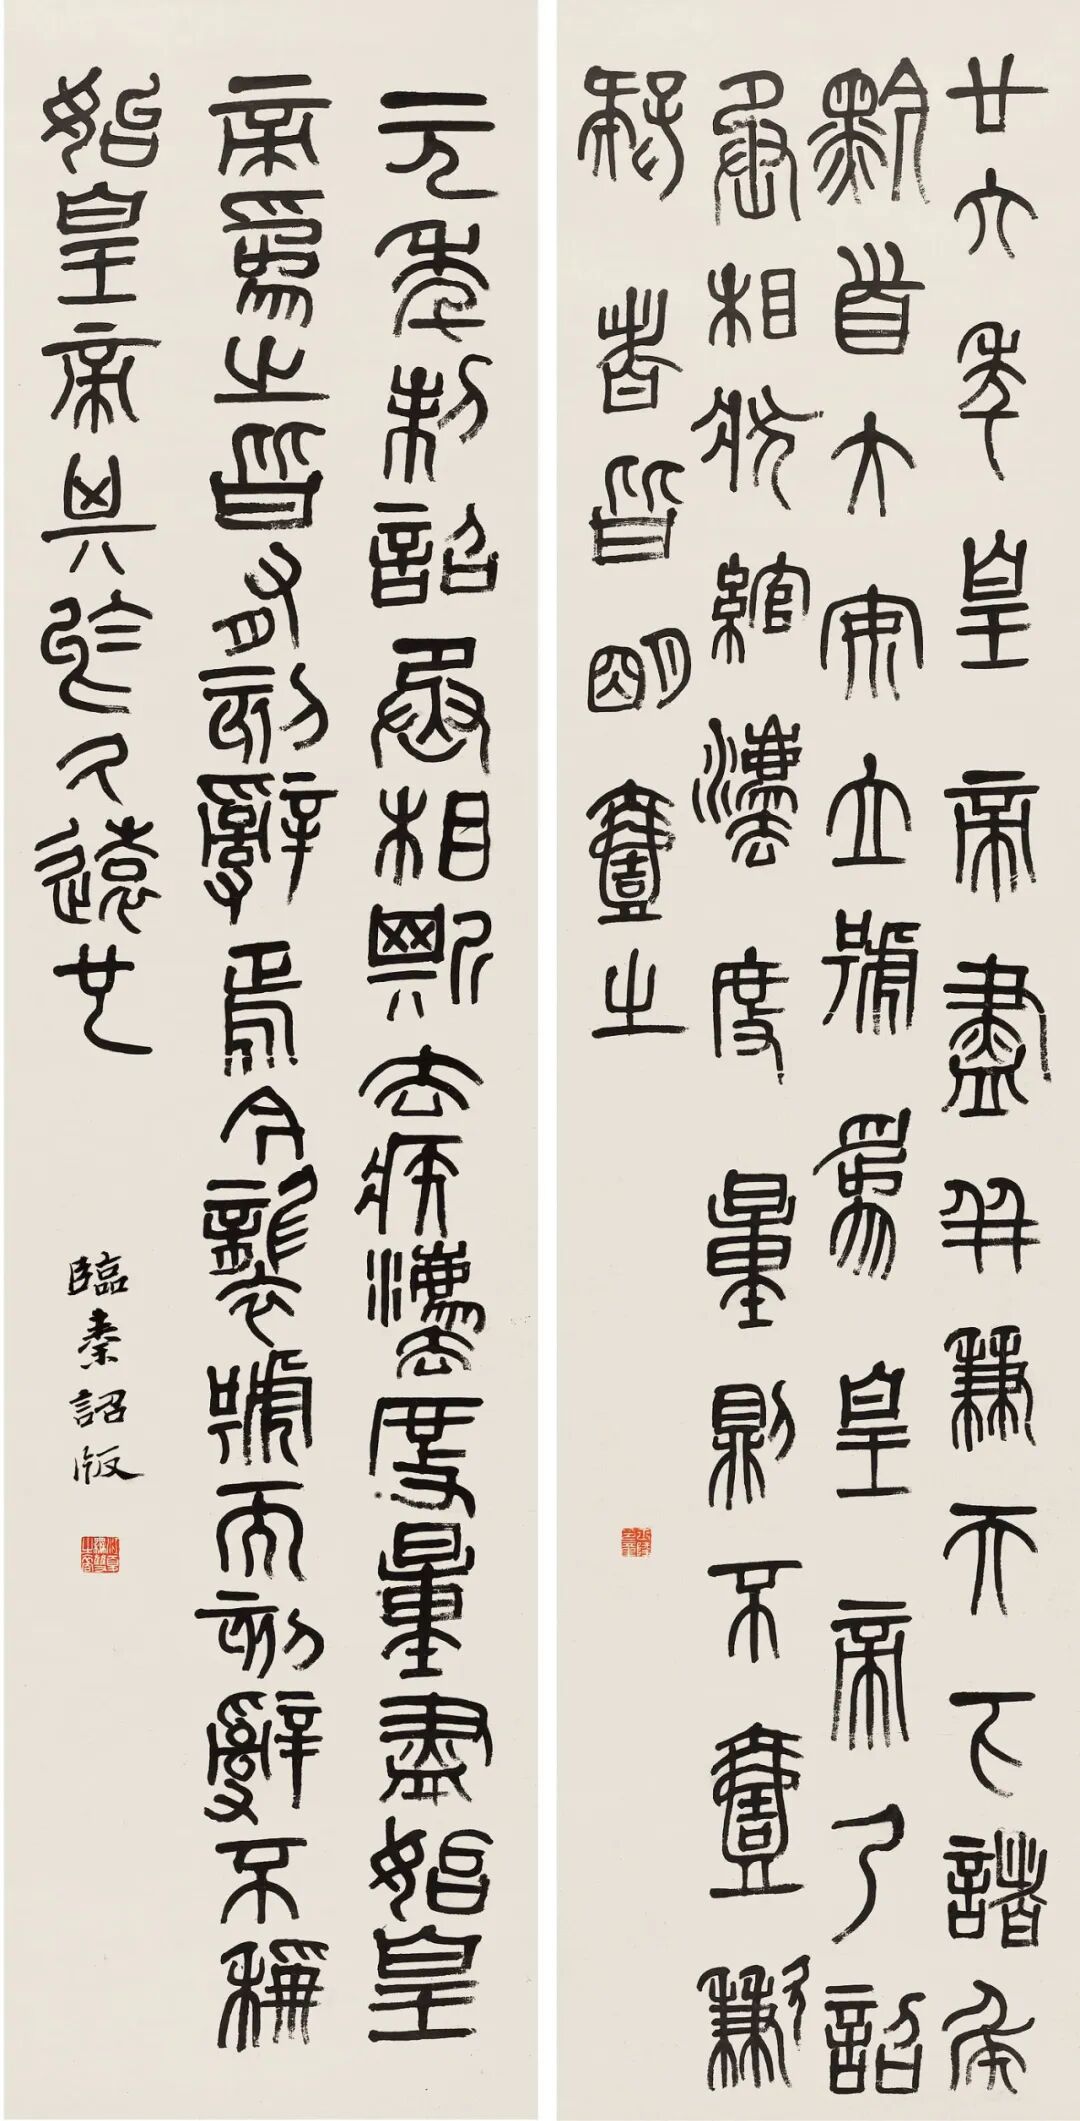 廿六年皇帝盡并兼天下諸侯
黔首大安立號爲皇帝乃詔
丞相狀綰灋度量則不壹歉
疑者皆明壹之
元年制詔丞相斯去疾灋度量盡始皇
帝爲之皆有刻辭焉今襲號而刻辭不稱
始皇帝其於久遠也
臨秦詔版